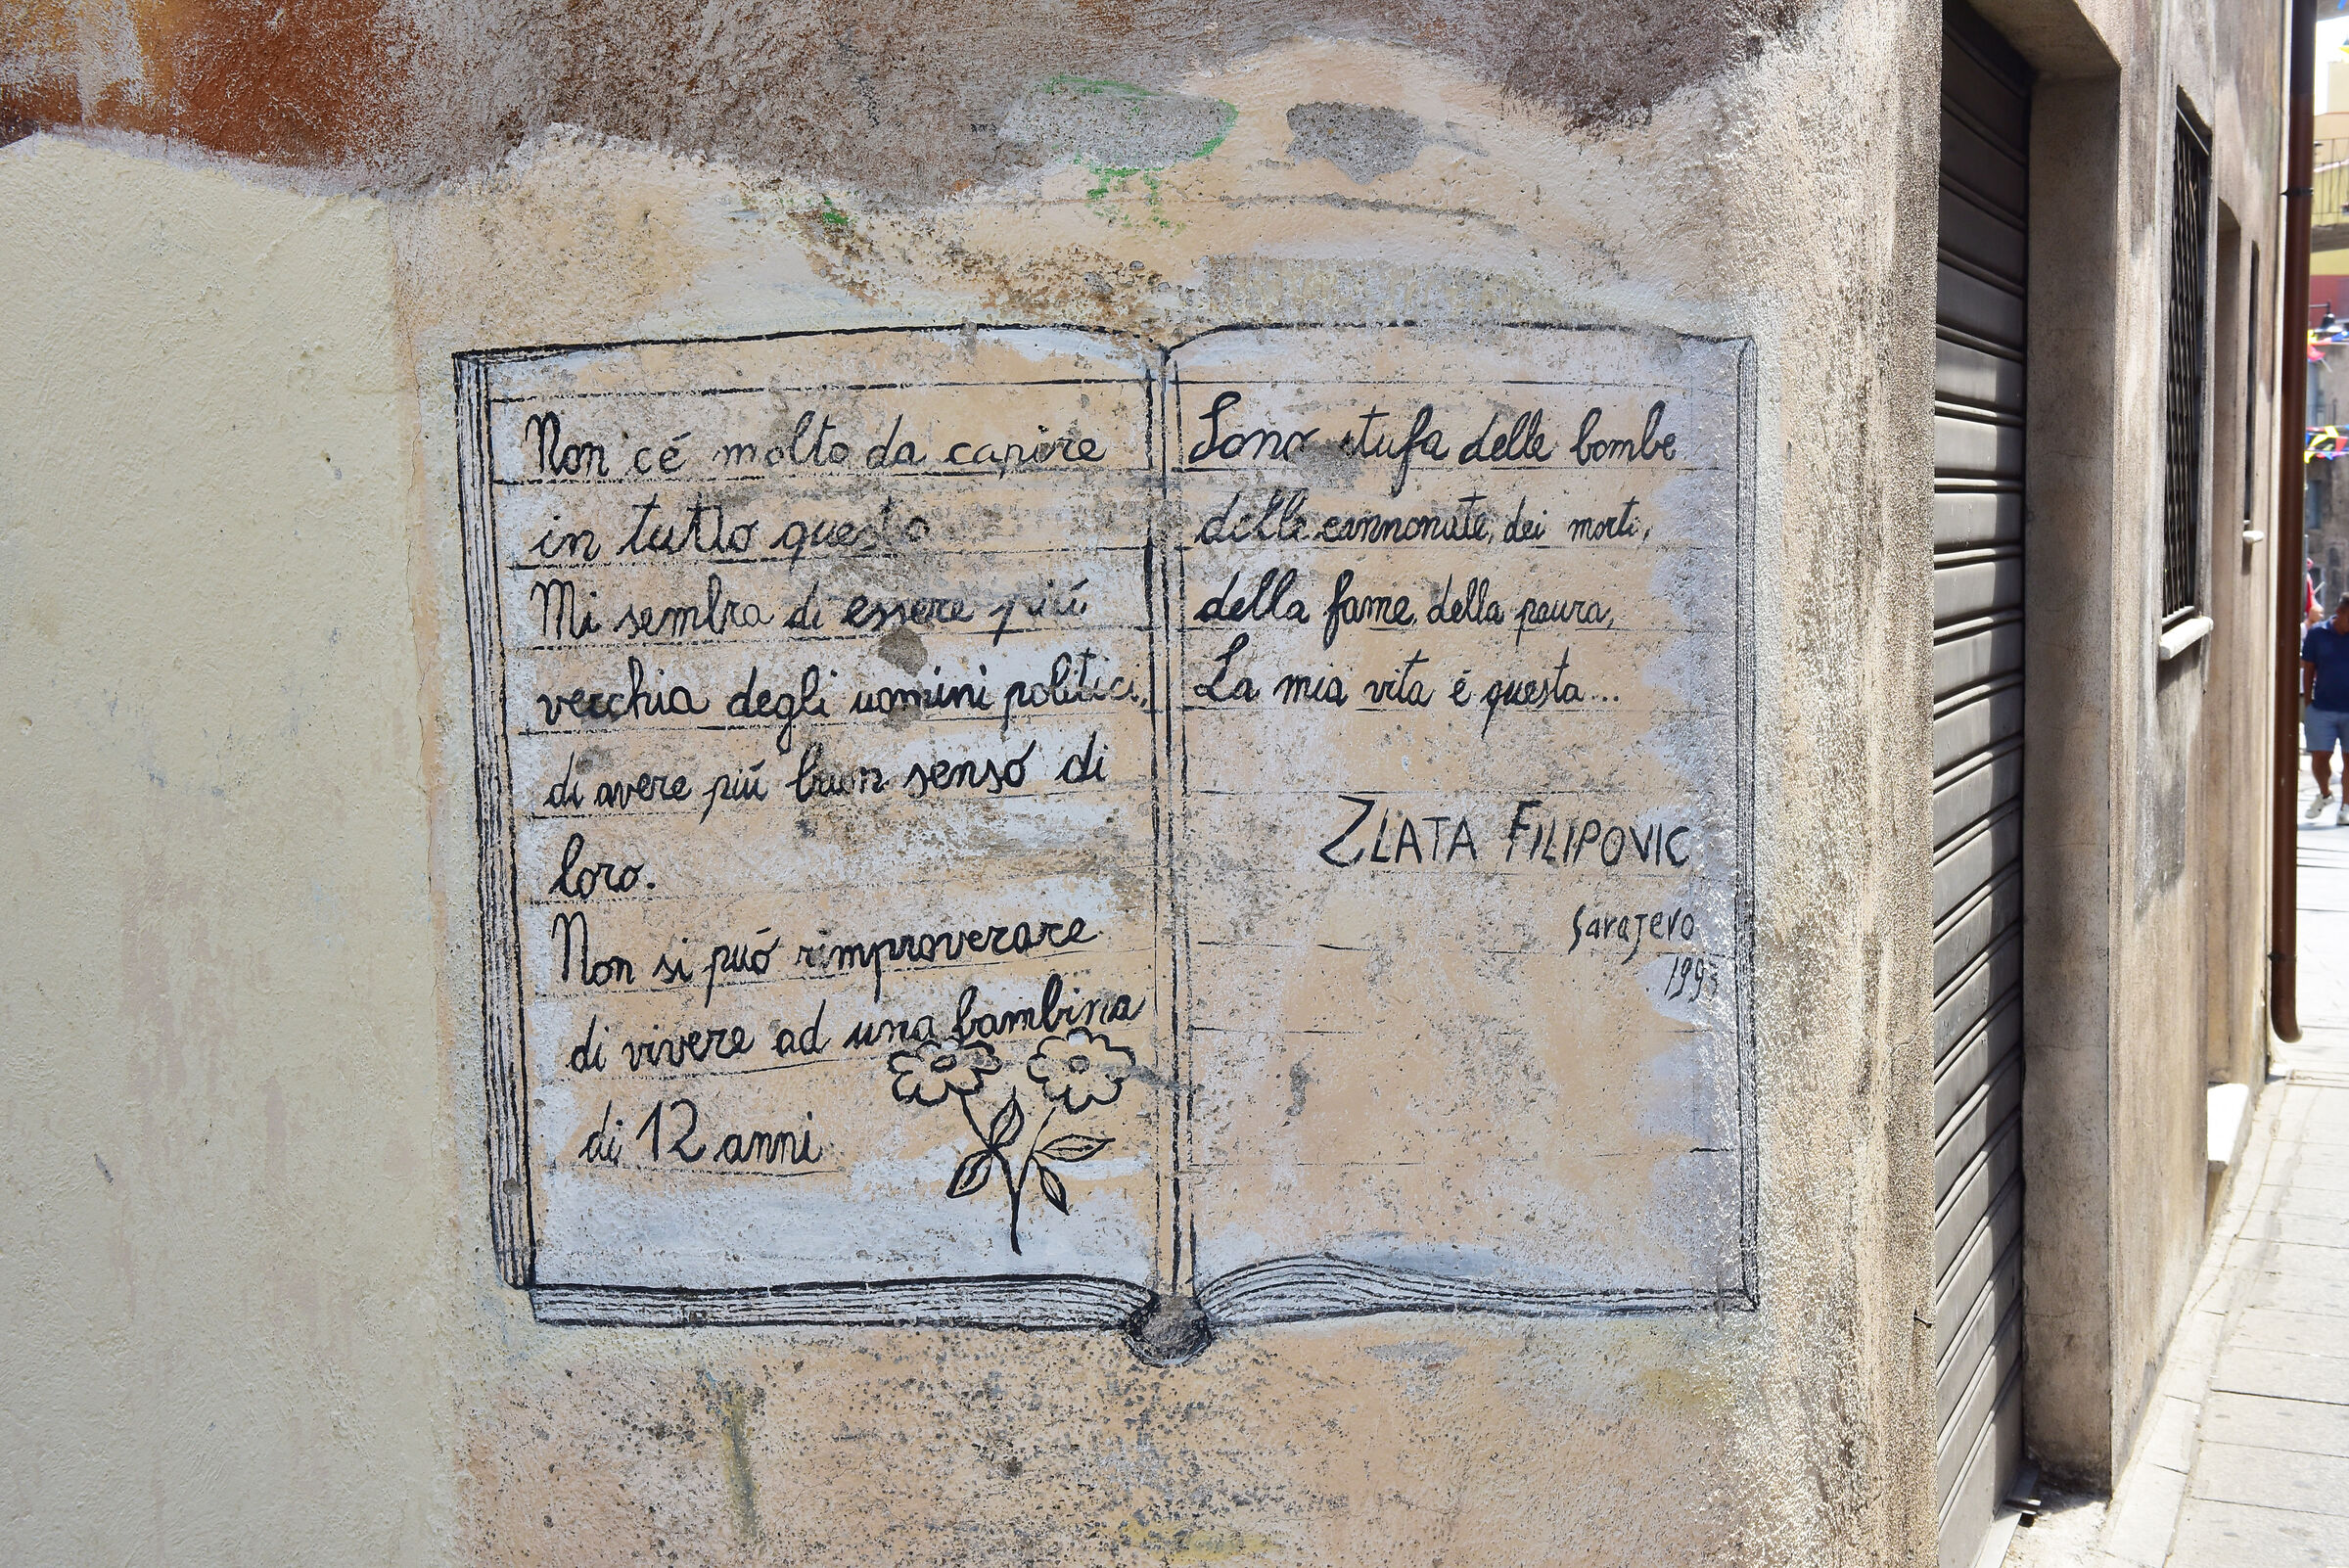 Non cé molto da capire
in tutto questo
Mi sembra di essere piú
vecchia degli uomini politici,
di avere piú buon senso di
loro.
Non si puó rimproverare
di vivere ad una bambina
di 12 anni
Sono stufa delle bombe
delle cannonate, dei morti,
della fame, della paura,
La mia vita é questa...
ZLATA FILIPOVIC
Sarajevo
1993